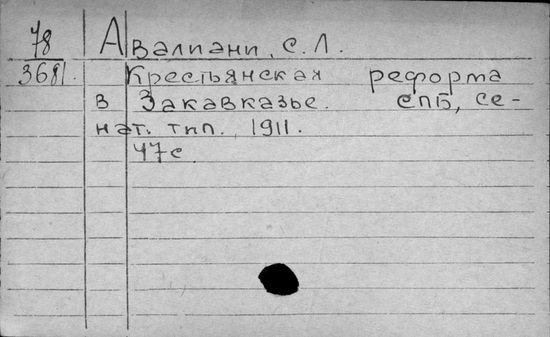 78 Авалиани, С. Л.
3681. Крестьянская реформа
в Закавказье. СПБ, се-
нат. тип., 1911.
47с.